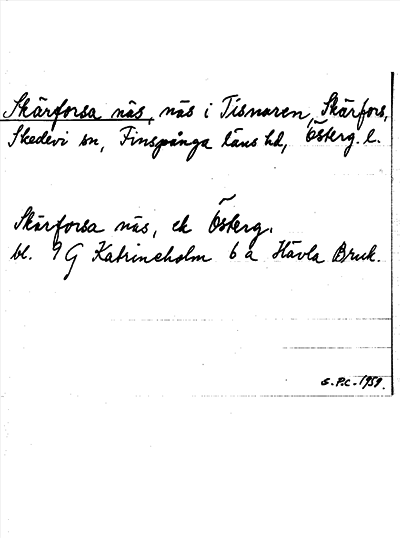 Skärforsa näs, näs i Tisnaren, Skärfors,
Skedevi sn, Finspånga läns hd, Österg. l.
Skärforsa näs, ek Österg.
bl. 9 G Katrineholm 6 a Hävla Bruk.
G.P.C. 1959.